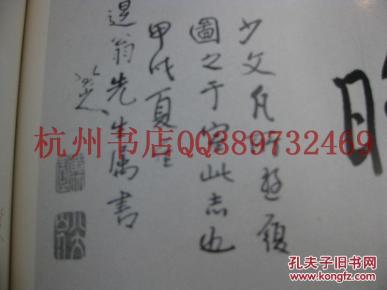 少文凡所遊履
圖之于室此志也
甲戌夏
遐翁先生屬書
杭州书店QQ389732469
孔夫子旧书网